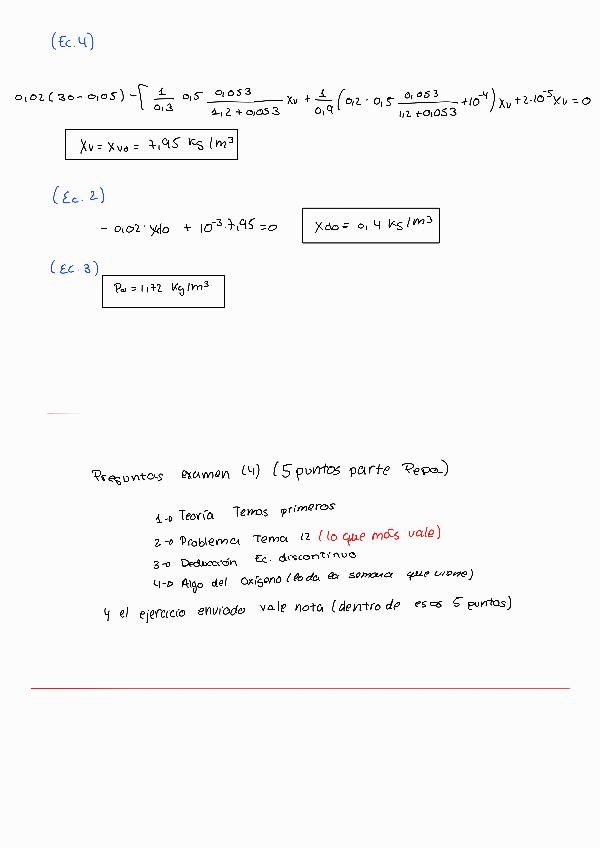 (Ec. 4)
0,02 (30 - 0,05) - [ 1/0,3 0,5 0,053/(1,2 + 0,053) Xv + 1/0,9 ( 0,2 · 0,5 0,053/(1,2 + 0,053) + 10^-4 ) Xv + 2·10^-5 Xv = 0
Xv = Xvo = 7,95 kg/m³
(Ec. 2)
- 0,02 · Xdo + 10^-3 · 7,95 = 0 Xdo = 0,4 kg/m³
(Ec. 3)
= 1,72 kg/m³
Preguntas examen (4) (5 puntos parte Pepa)
1→ Teoría Temas primeros
2→ Problema Tema 12 (lo que más vale)
3→ Deducción Ec. discontinuo
4→ Algo del Oxígeno (lo da la semana que viene)
Y el ejercicio enviado vale nota (dentro de esos 5 puntos)